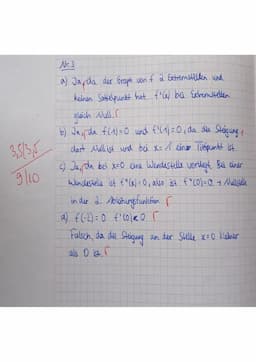 Nr. 3
a) Ja, da der Graph von f 2 Extremstellen und
keinen Sattelpunkt hat. f'(x) bei Extremstellen
gleich Null.
b) Ja, da f(1)=0 und f'(1)=0, da die Steigung
dort Null ist und bei x=1 einen Tiefpunkt ist.
c) Ja, da bei x=0 eine Wendestelle vorliegt. Bei einer
Wendestelle ist f"(x)=0, also ist f"(0)=0 → Nullstelle
in der 2. Ableitungsfunktion
d) f(-2)=0 f'(0)<0
Falsch, da die Steigung an der Stelle x=0 kleiner
als 0 ist.
3,5/3,5
9/10